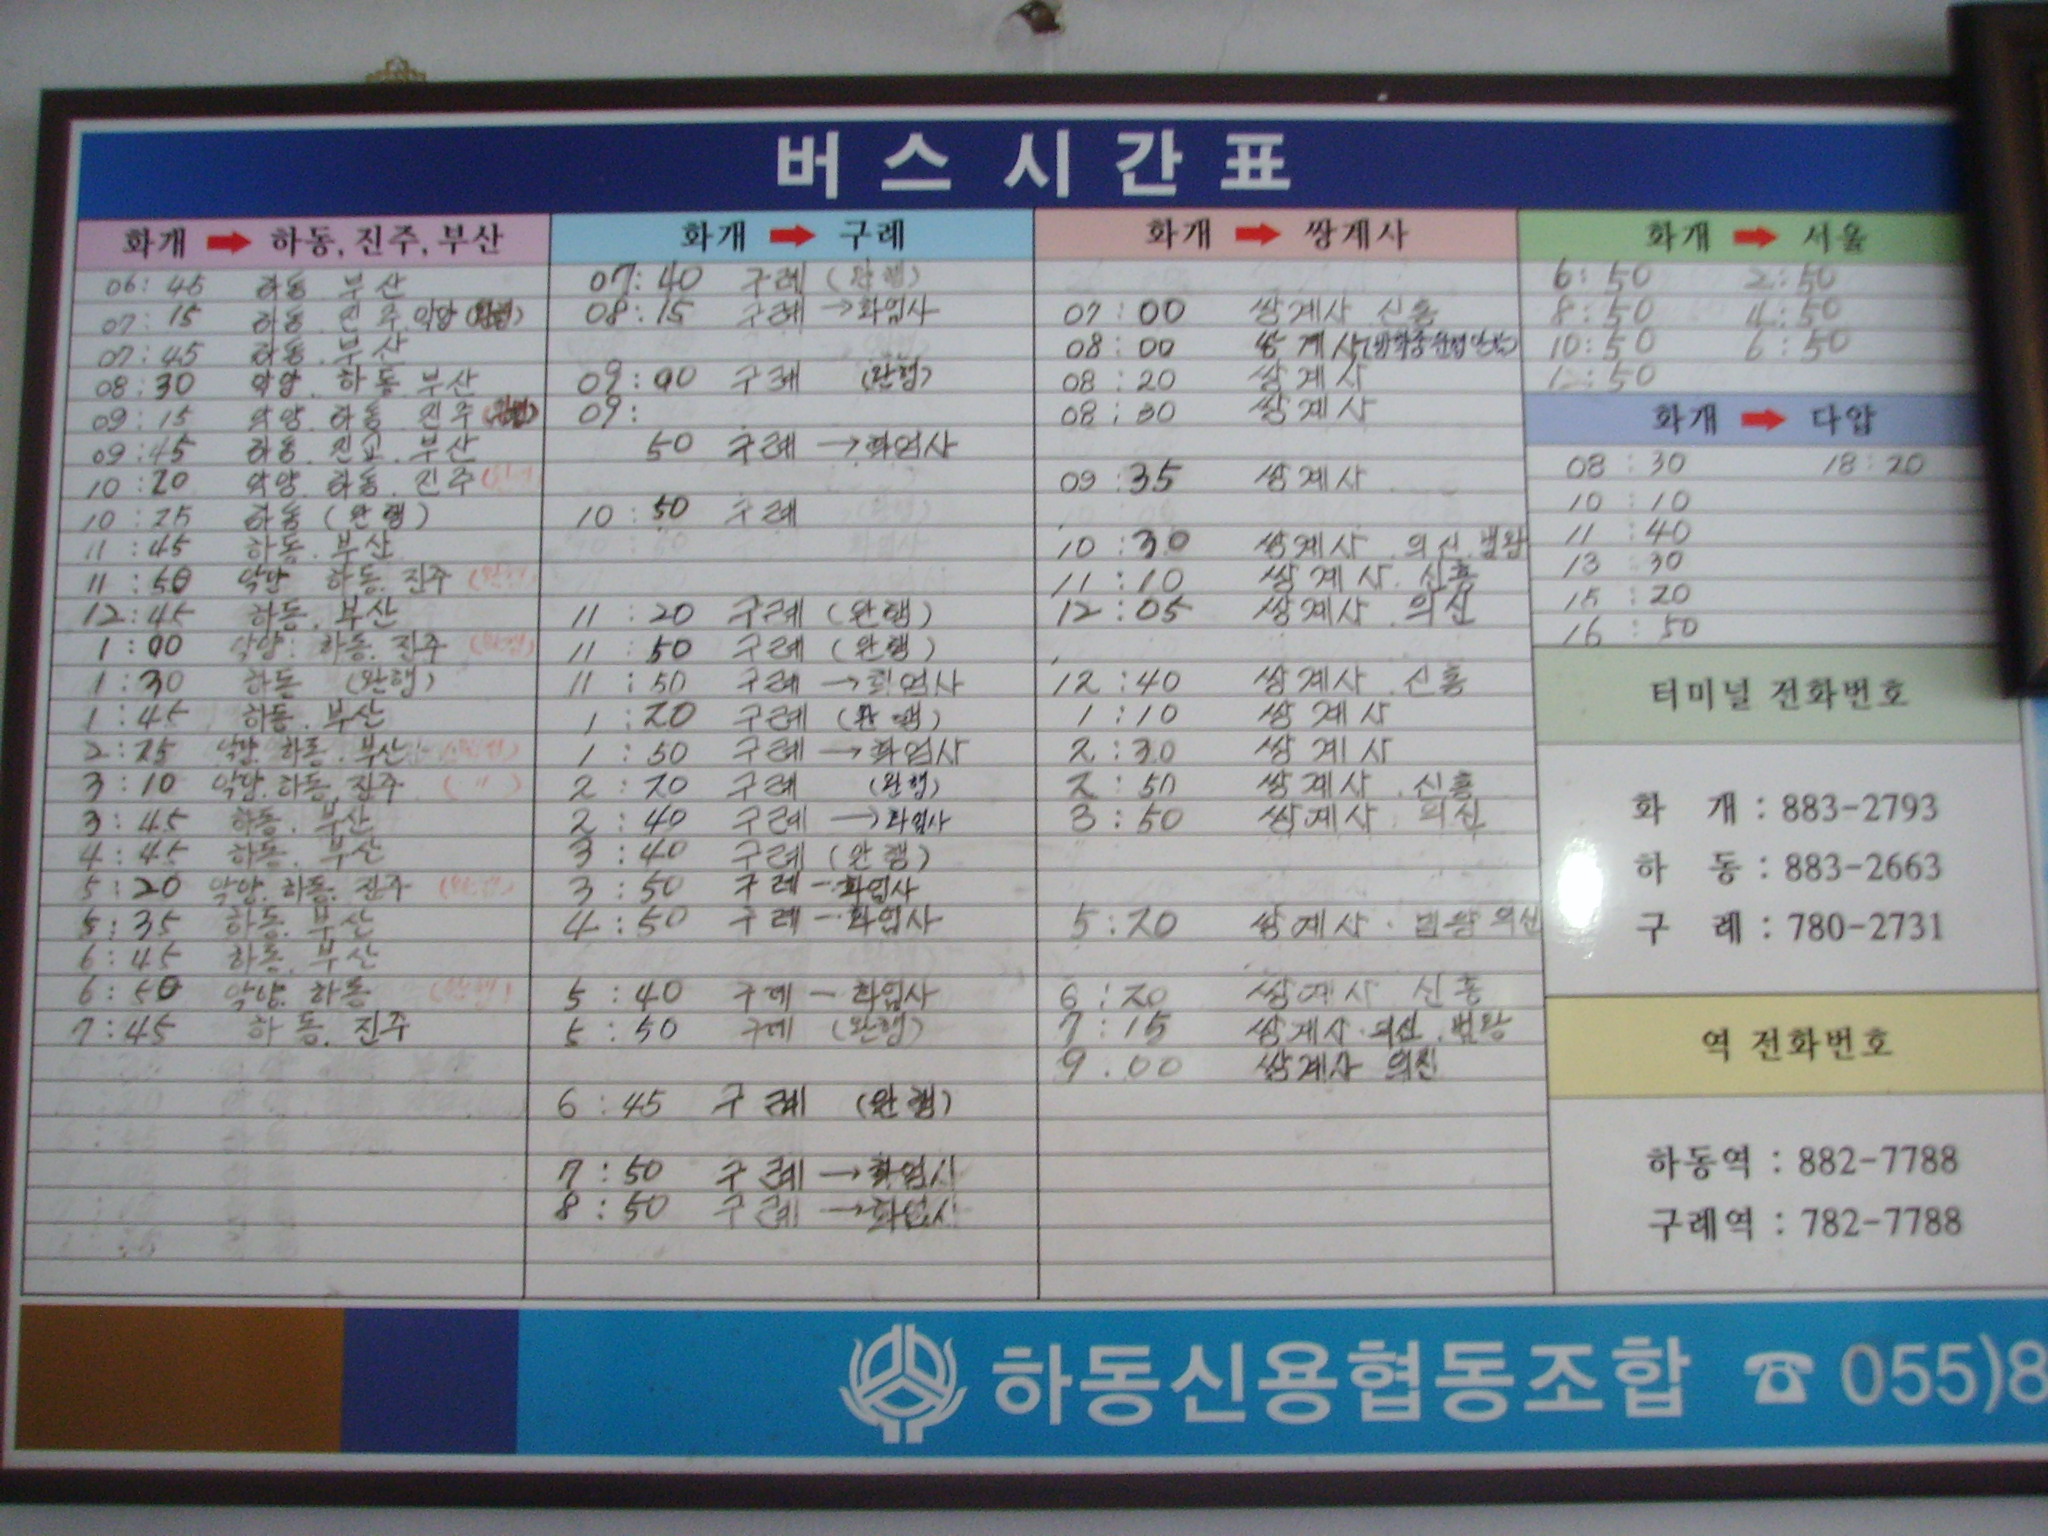 버스시간표
화개 ➡ 하동, 진주, 부산
06:45 하동. 부산
07:15 하동. 진주. 악양
07:45 하동. 부산
08:30 악양. 하동. 부산
09:15 악양. 하동. 진주
09:45 하동. 진교. 부산
10:20 악양. 하동. 진주
10:25 하동 (완행)
11:45 하동. 부산
11:50 악양. 하동. 진주 (완행)
12:45 하동. 부산
1:00 악양. 하동. 진주 (완행)
1:30 하동 (완행)
1:45 하동. 부산
2:25 악양. 하동. 부산
3:10 악양. 하동. 진주 (")
3:45 하동. 부산
4:45 하동. 부산
5:20 악양. 하동. 진주 (완행)
5:35 하동. 부산
6:45 하동. 부산
6:50 악양. 하동 (완행)
7:45 하동. 진주
화개 ➡ 구례
07:40 구례 (완행)
08:15 구례 → 화엄사
09:00 구례 (완행)
09:
50 구례 → 화엄사
10:50 구례
11:20 구례 (완행)
11:50 구례 (완행)
11:50 구례 → 화엄사
1:20 구례 (완행)
1:50 구례 → 화엄사
2:20 구례 (완행)
2:40 구례 → 화엄사
3:40 구례 (완행)
3:50 구례 - 화엄사
4:50 구례 - 화엄사
5:40 구례 - 화엄사
5:50 구례 (완행)
6:45 구례 (완행)
7:50 구례 → 화엄사
8:50 구례 → 화엄사
화개 ➡ 쌍계사
07:00 쌍계사 신흥
08:00 쌍계사
08:20 쌍계사
08:30 쌍계사
09:35 쌍계사
10:30 쌍계사. 의신. 범왕
11:10 쌍계사. 신흥
12:05 쌍계사. 의신
12:40 쌍계사. 신흥
1:10 쌍계사
2:30 쌍계사
2:50 쌍계사. 신흥
3:50 쌍계사. 의신
5:20 쌍계사. 범왕 의신
6:20 쌍계사 신흥
7:15 쌍계사. 의신. 범왕
9:00 쌍계사 의신
화개 ➡ 서울
6:50 2:50
8:50 4:50
10:50 6:50
12:50
화개 ➡ 다압
08:30 18:20
10:10
11:40
13:30
15:20
16:50
터미널 전화번호
화 개 : 883-2793
하 동 : 883-2663
구 례 : 780-2731
역 전화번호
하동역 : 882-7788
구례역 : 782-7788
하동신용협동조합 ☎ 055)8